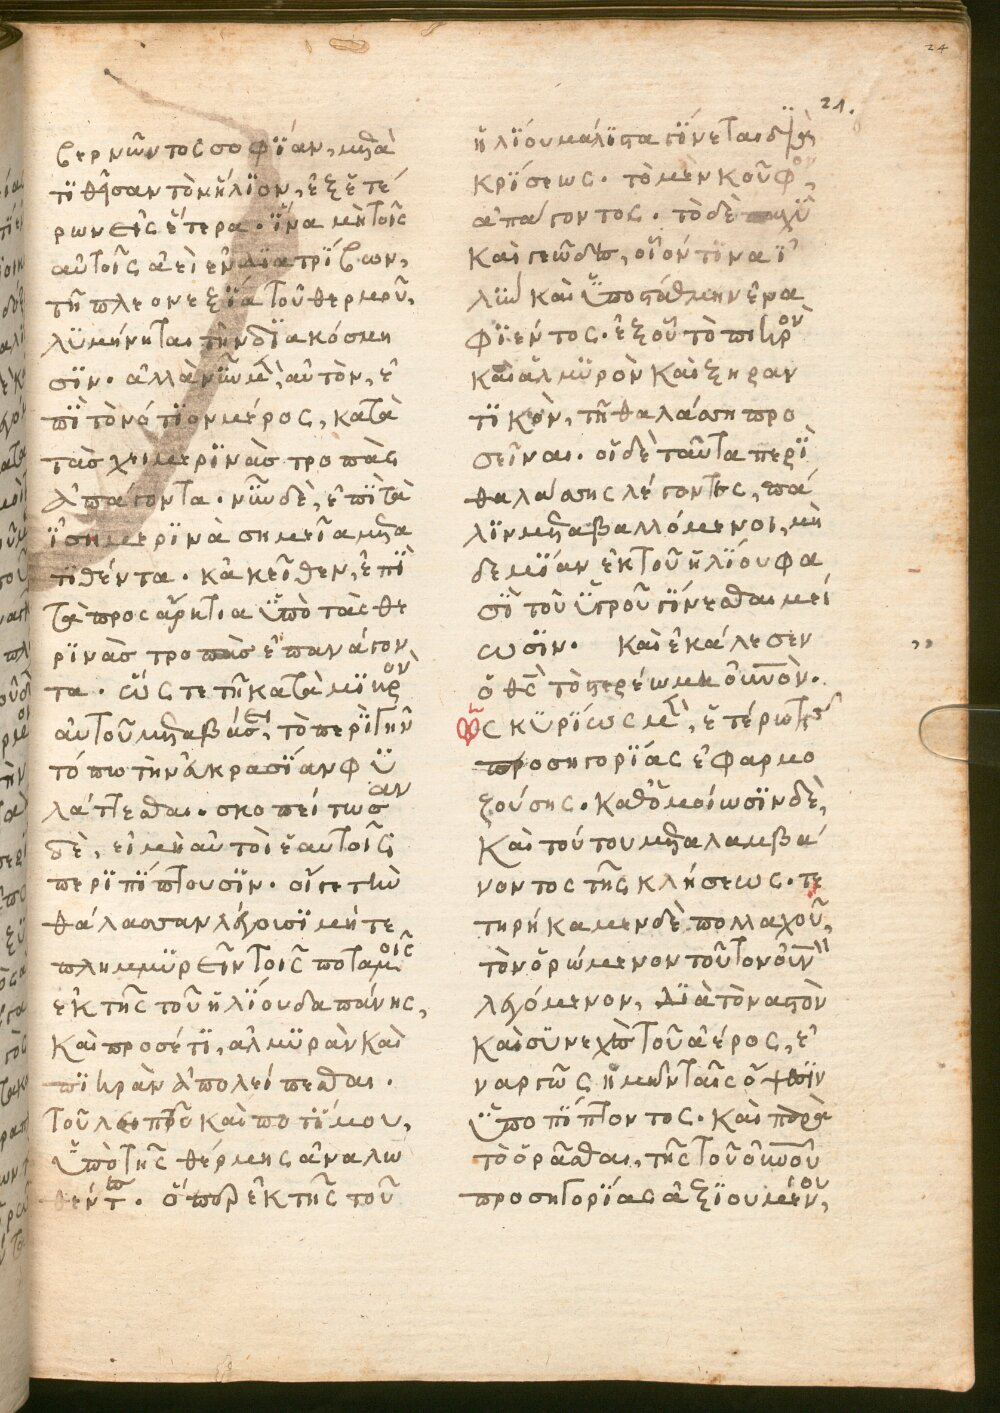 24
21.
βερνῶντος σοφίαν, μετα
τιθῆσαν τὸν ἥλιον, ἐξ ἑτέ
ρων εἰς ἕτερα. ἵνα μὴ τοῖς
αὐτοῖς ἀεὶ ἐνδιατρίβων,
τῇ πλεονεξίᾳ τοῦ θερμοῦ,
λυμήνηται τὴν διακόσμη
σιν. ἀλλὰ νῦν μὲν αὐτὸν, ἐ
πὶ τὸ νότιον μέρος, κατὰ
τὰς χειμερινὰς τροπὰς
ἀπάγοντα. νῦν δὲ, ἐπὶ τὰ
ἰσημερινὰ σημεῖα μετα
τιθέντα. κἀκεῖθεν, ἐπὶ
τὰ προσάρκτια ὑπὸ τὰς θε
ρινὰς τροπὰς ἐπανάγον
τα. ὥστε τῇ κατὰ μικρὸν
αὐτοῦ μεταβάσει, τὸ περὶ τὴν
τόπω τὴν ἀκρασίαν φυ
λάττεσθαι. σκοπείτωσαν
δὲ, εἰ μὴ αὐτοὶ ἑαυτοῖς
περιπίπτουσιν. οἵ γε τὴν
θάλασσαν λέγουσι μήτε
πλημμυρεῖν τοῖς ποταμοῖς
ἐκ τῆς τοῦ ἡλίου δαπάνης,
καὶ προσέτι, ἁλμυρὰν καὶ
πικρὰν ἀπολείπεσθαι.
τοῦ λεπτοῦ καὶ ποτίμου,
ὑπὸ τῆς θέρμης ἀναλω
θέντος. ὅπερ ἐκ τῆς τοῦ
ἡλίου μάλιστα γίνεται δια
κρίσεως. τὸ μὲν κοῦφον,
ἀπάγοντος. τὸ δὲ παχὺ
καὶ γεῶδες, οἷόν τινα ἰ
λὺν καὶ ὑποστάθμην ἐνα
φιέντος. ἐξ οὗ τὸ πικρὸν
καὶ ἁλμυρὸν καὶ ξηραν
τικὸν, τῇ θαλάσσῃ προ
σεῖναι. οἱ δὲ ταῦτα περὶ
θαλάσσης λέγοντες, πά
λιν μεταβαλλόμενοι, μη
δεμίαν ἐκ τοῦ ἡλίου φα
σὶ τοῦ ὑγροῦ γίνεσθαι μεί
ωσιν. Καὶ ἐκάλεσεν
ὁ θς τὸ στερέωμα οὐνὸν.
Ὡς κυρίως μὲν, ἑτέρῳ τῆς
προσηγορίας ἐφαρμο
ζούσης. καθ' ὁμοίωσιν δὲ,
καὶ τούτου μεταλαμβά
νοντος τῆς κλήσεως. τε
τηρήκαμεν δὲ πολλαχοῦ,
τὸν ὁρώμενον τοῦτον οὐνὸν
λεγόμενον, διὰ τὸ ναστὸν
καὶ συνεχὲς τοῦ ἀέρος, ἐ
ναργῶς ἡμῶν ταῖς ὄψεσιν
ὑποπίπτοντος. καὶ παρὰ
τὸ ὁρᾶσθαι, τῆς τοῦ οὐνοῦ
προσηγορίας ἀξιουμένου,